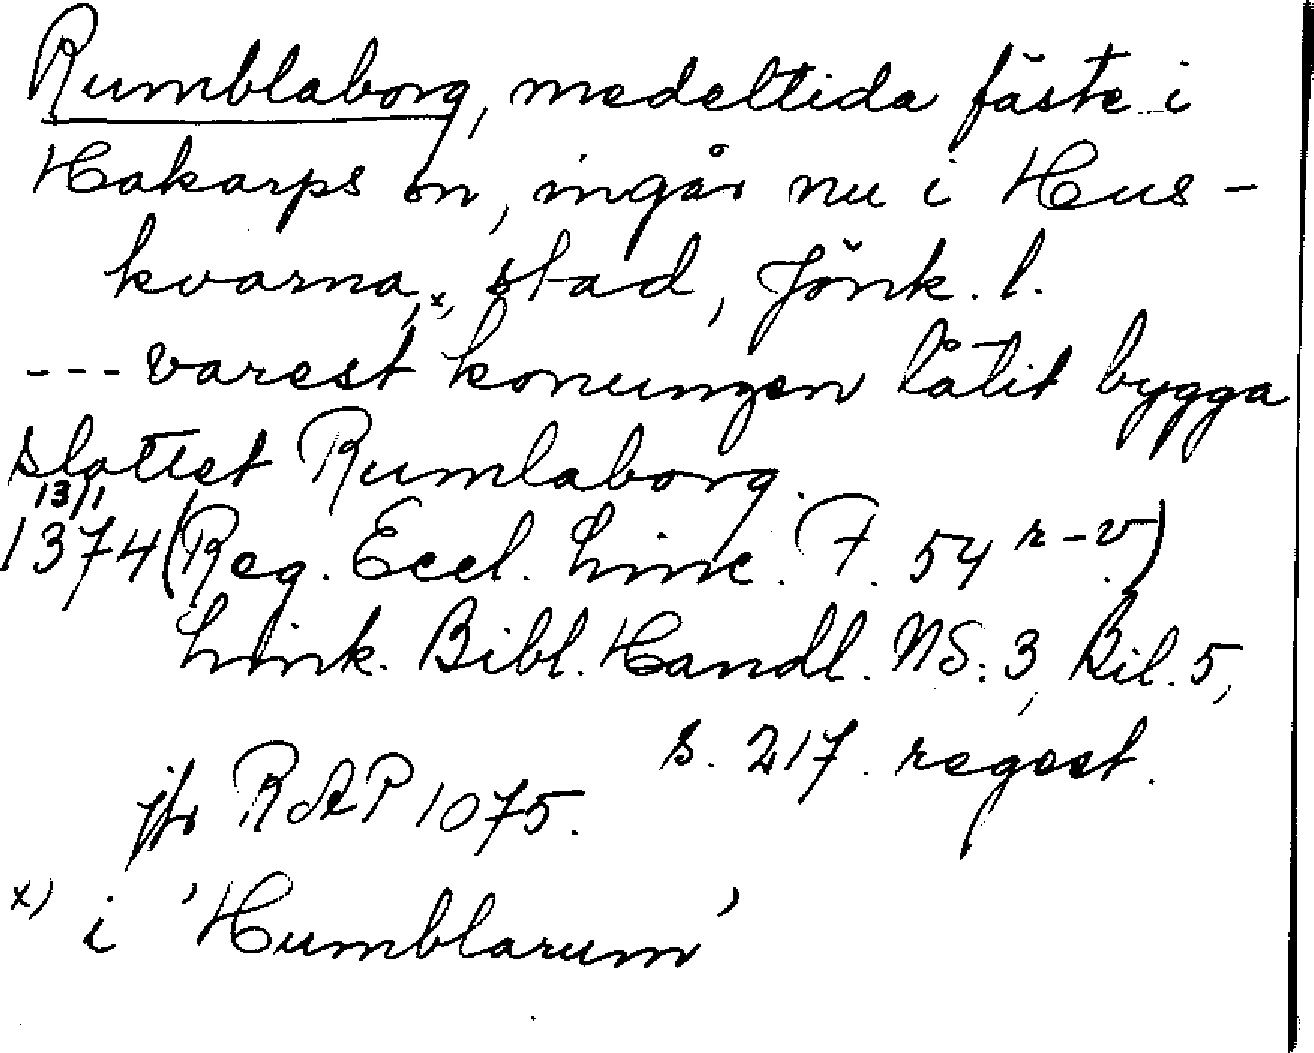 Rumblaborg, medeltida fäste i
Hakarps sn, ingår nu i Hus-
kvarna,x, stad, Jönk. l.
--- varest konungen låtit bygga
slottet Rumlaborg.
13/1
1374 (Reg. Eccl. Linc. F. 54 r-v.)
Link. Bibl. Handl. NS: 3, Bil. 5,
s. 217. regest.
jfr RAP 1075.
x) i 'Humblarum'